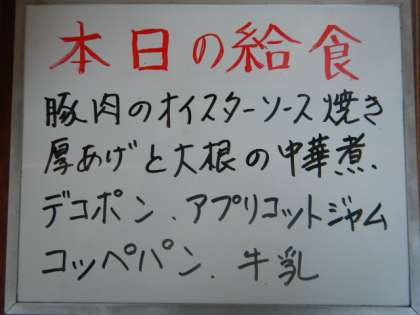 本日の給食
豚肉のオイスターソース焼き
厚あげと大根の中華煮、
デコポン、アプリコットジャム
コッペパン、牛乳